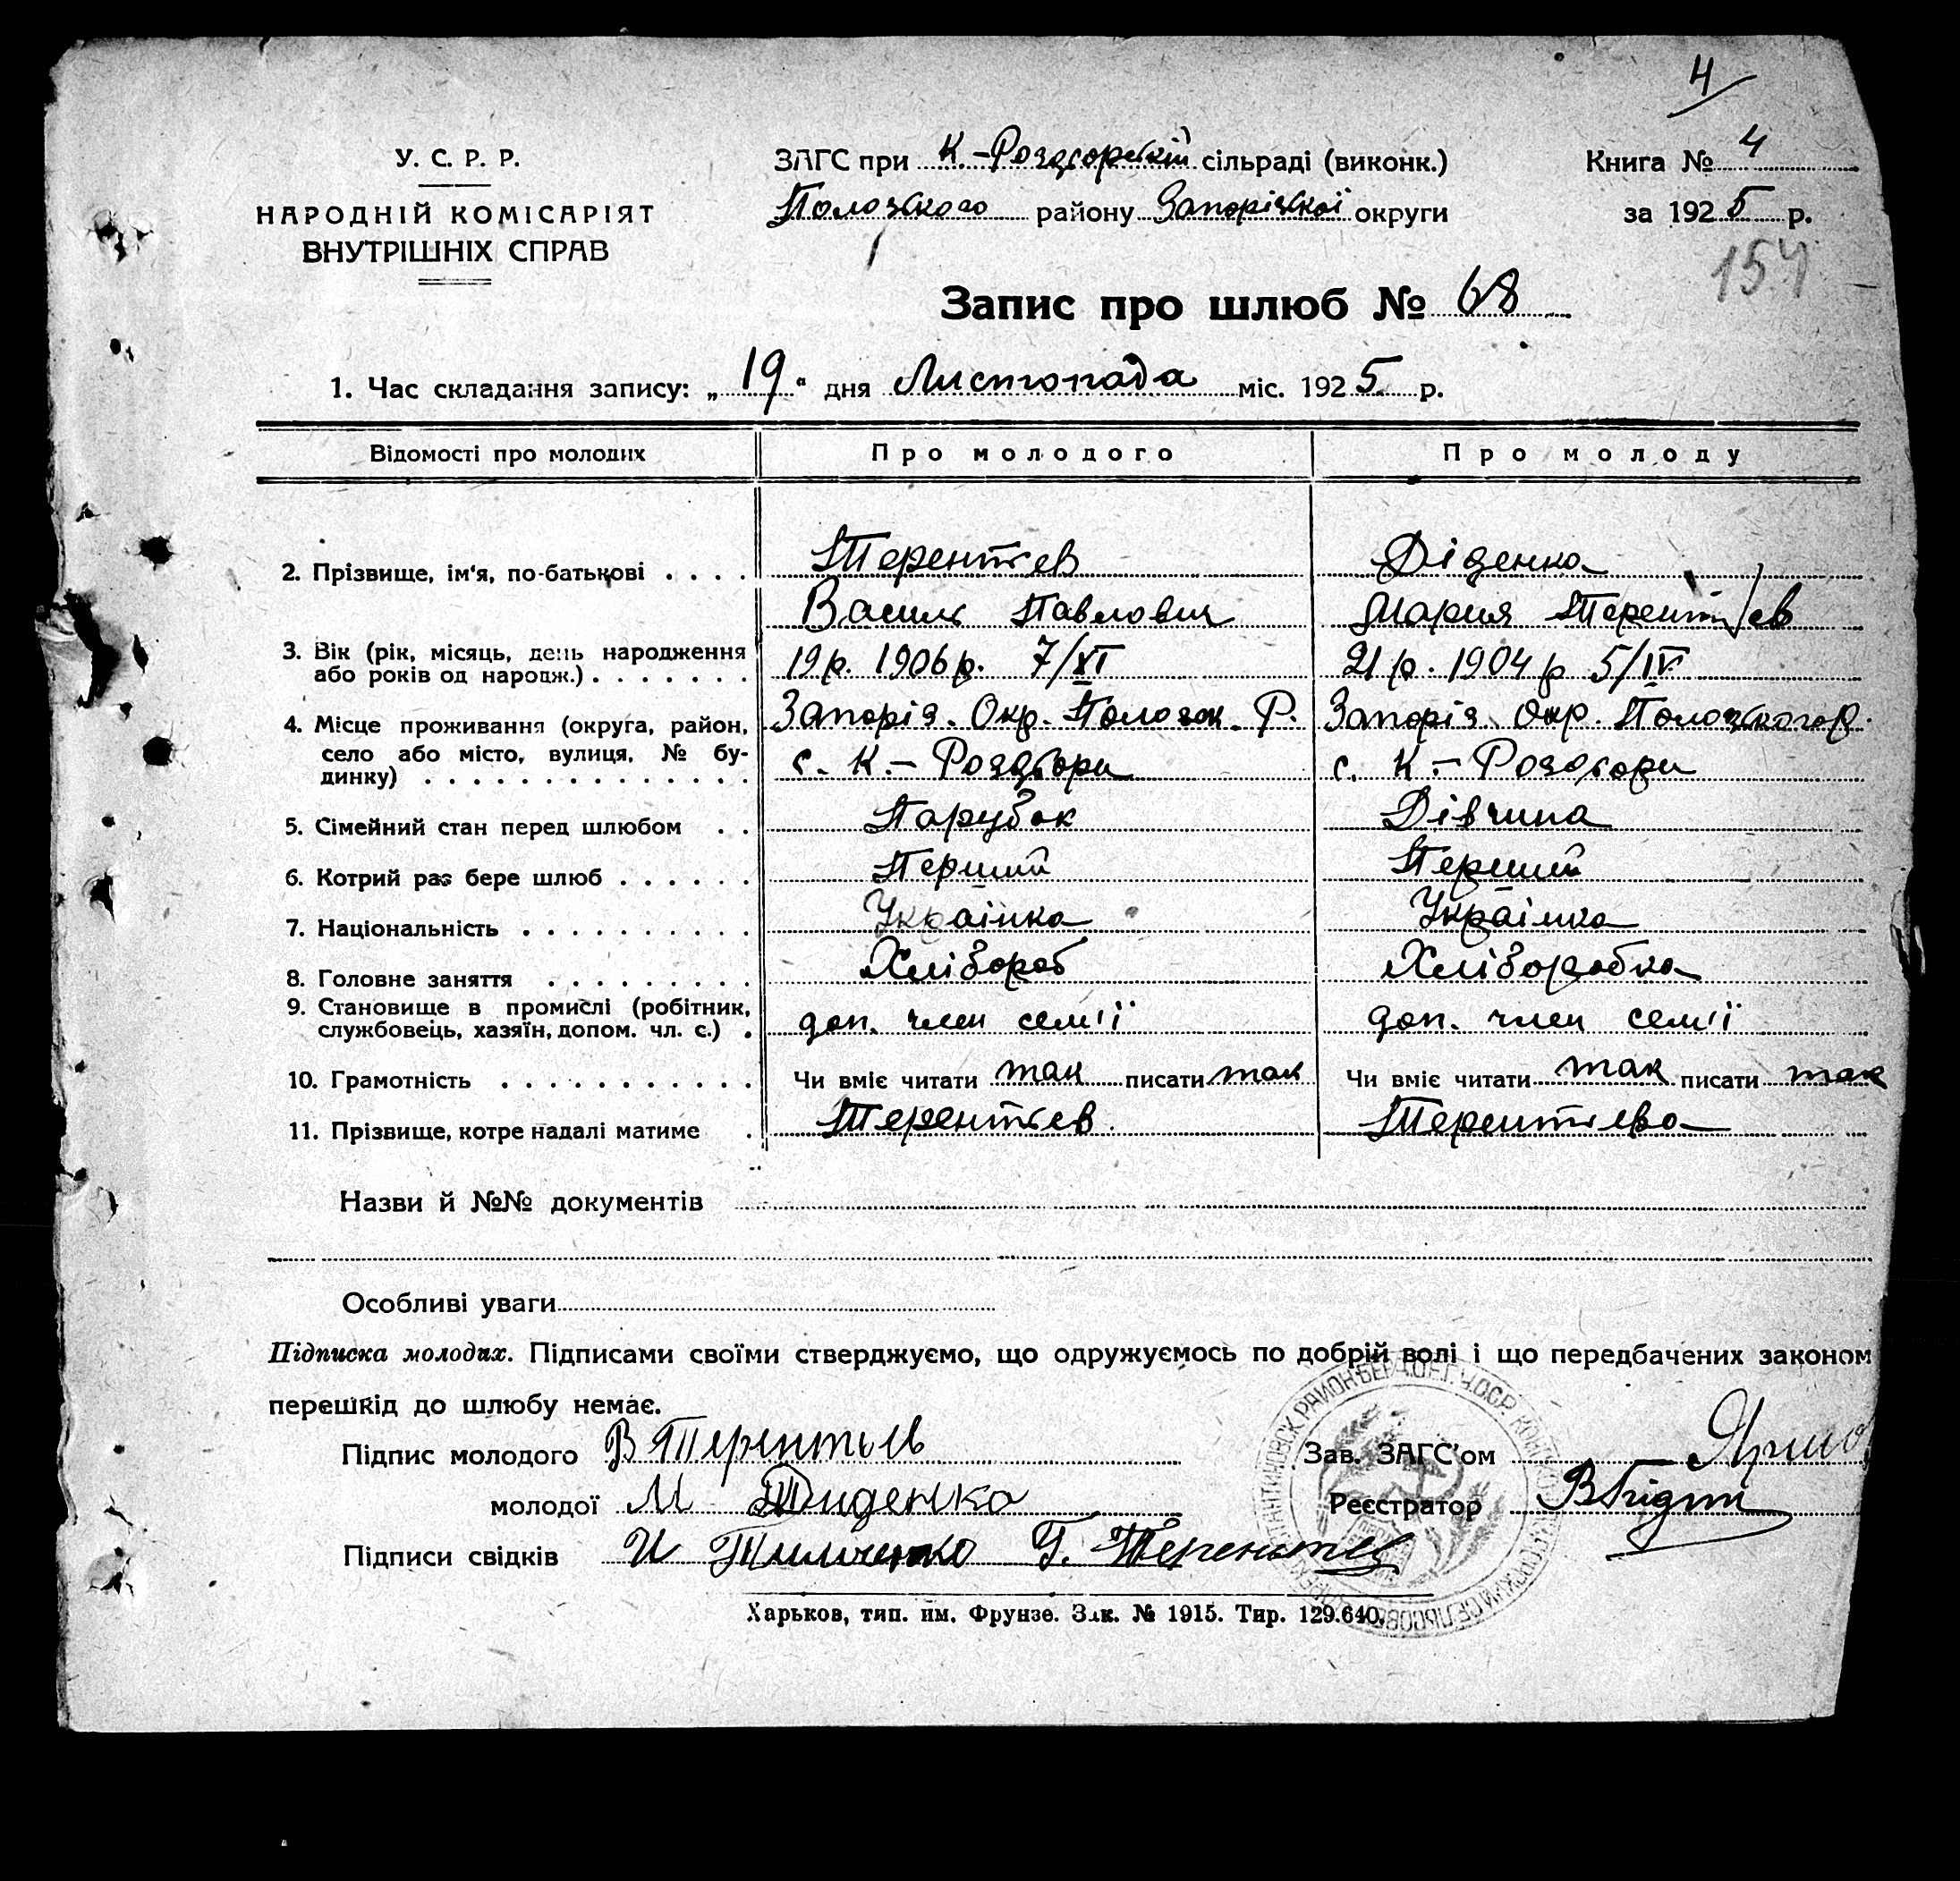 4
У. С. Р. Р.
НАРОДНІЙ КОМІСАРІЯТ
ВНУТРІШНІХ СПРАВ
ЗАГС при К.-Роздорській сільраді (виконк.)
Пологського району Запорізької округи
Книга № 4
за 1925 р.
154
Запис про шлюб № 68
1. Час складання запису: „19“ дня Листопада міс. 1925 р.
Відомості про молодих Про молодого Про молоду
2. Прізвище, ім'я, по-батькові . . . . Терентєв Діденко
Василь Павлович Мария Терентєв
3. Вік (рік, місяць, день народження
або років од народж.) . . . . . . . 19 р. 1906 р. 7/XI 21 р. 1904 р 5/IV
4. Місце проживання (округа, район, Запоріз. Окр. Пологск. Р. Запоріз. Окр. Пологського Р.
село або місто, вулиця, № бу-
динку) . . . . . . . . . . . . . . с. К.-Роздори с. К.-Роздори
5. Сімейний стан перед шлюбом . . Парубок Дівчина
6. Котрий раз бере шлюб . . . . . . Перший Перший
7. Національність . . . . . . . . . . Українка Українка
8. Головне заняття . . . . . . . . . Хлібороб Хліборобка
9. Становище в промислі (робітник,
службовець, хазяїн, допом. чл. с.) . доп. член сем'ї доп. член сем'ї
10. Грамотність . . . . . . . . . . . Чи вміє читати так писати так Чи вміє читати так писати так
11. Прізвище, котре надалі матиме . Терентєв Терентєва
Назви й №№ документів
Особливі уваги
Підписка молодих. Підписами своїми стверджуємо, що одружуємось по добрій волі і що передбачених законом
перешкід до шлюбу немає.
Підпис молодого В Терентьев
Зав. ЗАГС'ом
молодої М Диденко
Реєстратор
Підписи свідків И Г. Терентьев
Харьков, тип. им. Фрунзе. Зак. № 1915. Тир. 129.640.